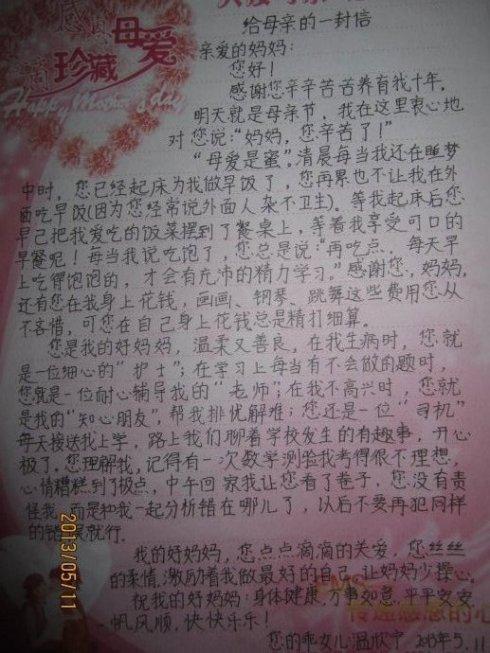 给母亲的一封信
珍藏母爱
Happy Mother's day
亲爱的妈妈：
您好！
感谢您辛辛苦苦养育我十年。
明天就是母亲节，我在这里衷心地
对您说："妈妈，您辛苦了！"
"母爱是蜜"，清晨每当我还在睡梦
中时，您已经起床为我做早饭了，您再累也不让我在外
面吃早饭(因为您经常说外面人杂不卫生)。等我起床后您
早已把我爱吃的饭菜摆到了餐桌上，等着我享受可口的
早餐呢！每当我说吃饱了，您总是说："再吃点，每天早
上吃得饱饱的，才会有充沛的精力学习。"感谢您，妈妈，
还有您在我身上花钱，画画、钢琴、跳舞这些费用您从
不吝惜，可您在自己身上花钱总是精打细算。
您是我的好妈妈，温柔又善良，在我生病时，您就
是一位细心的"护士"；在学习上每当有不会做的题时，
您就是一位耐心辅导我的"老师"；在我不高兴时，您就
是我的"知心朋友"，帮我排忧解难；您还是一位"司机"
每天接送我上学，路上我们聊着学校发生的有趣事，开心
极了。您理解我，记得有一次数学测验我考得很不理想，
心情糟糕到了极点，中午回家我让您看了卷子，您没有责
怪我，而是和我一起分析错在哪儿了，以后不要再犯同样
的错误就行。
我的好妈妈，您点点滴滴的关爱，您丝丝
的柔情，激励着我做最好的自己，让妈妈少操心。
祝我的好妈妈：身体健康，万事如意，平平安安
帆风顺，快快乐乐！
传递感恩的心
您的乖女儿：温欣宁 2013年5.11
2013/05/11